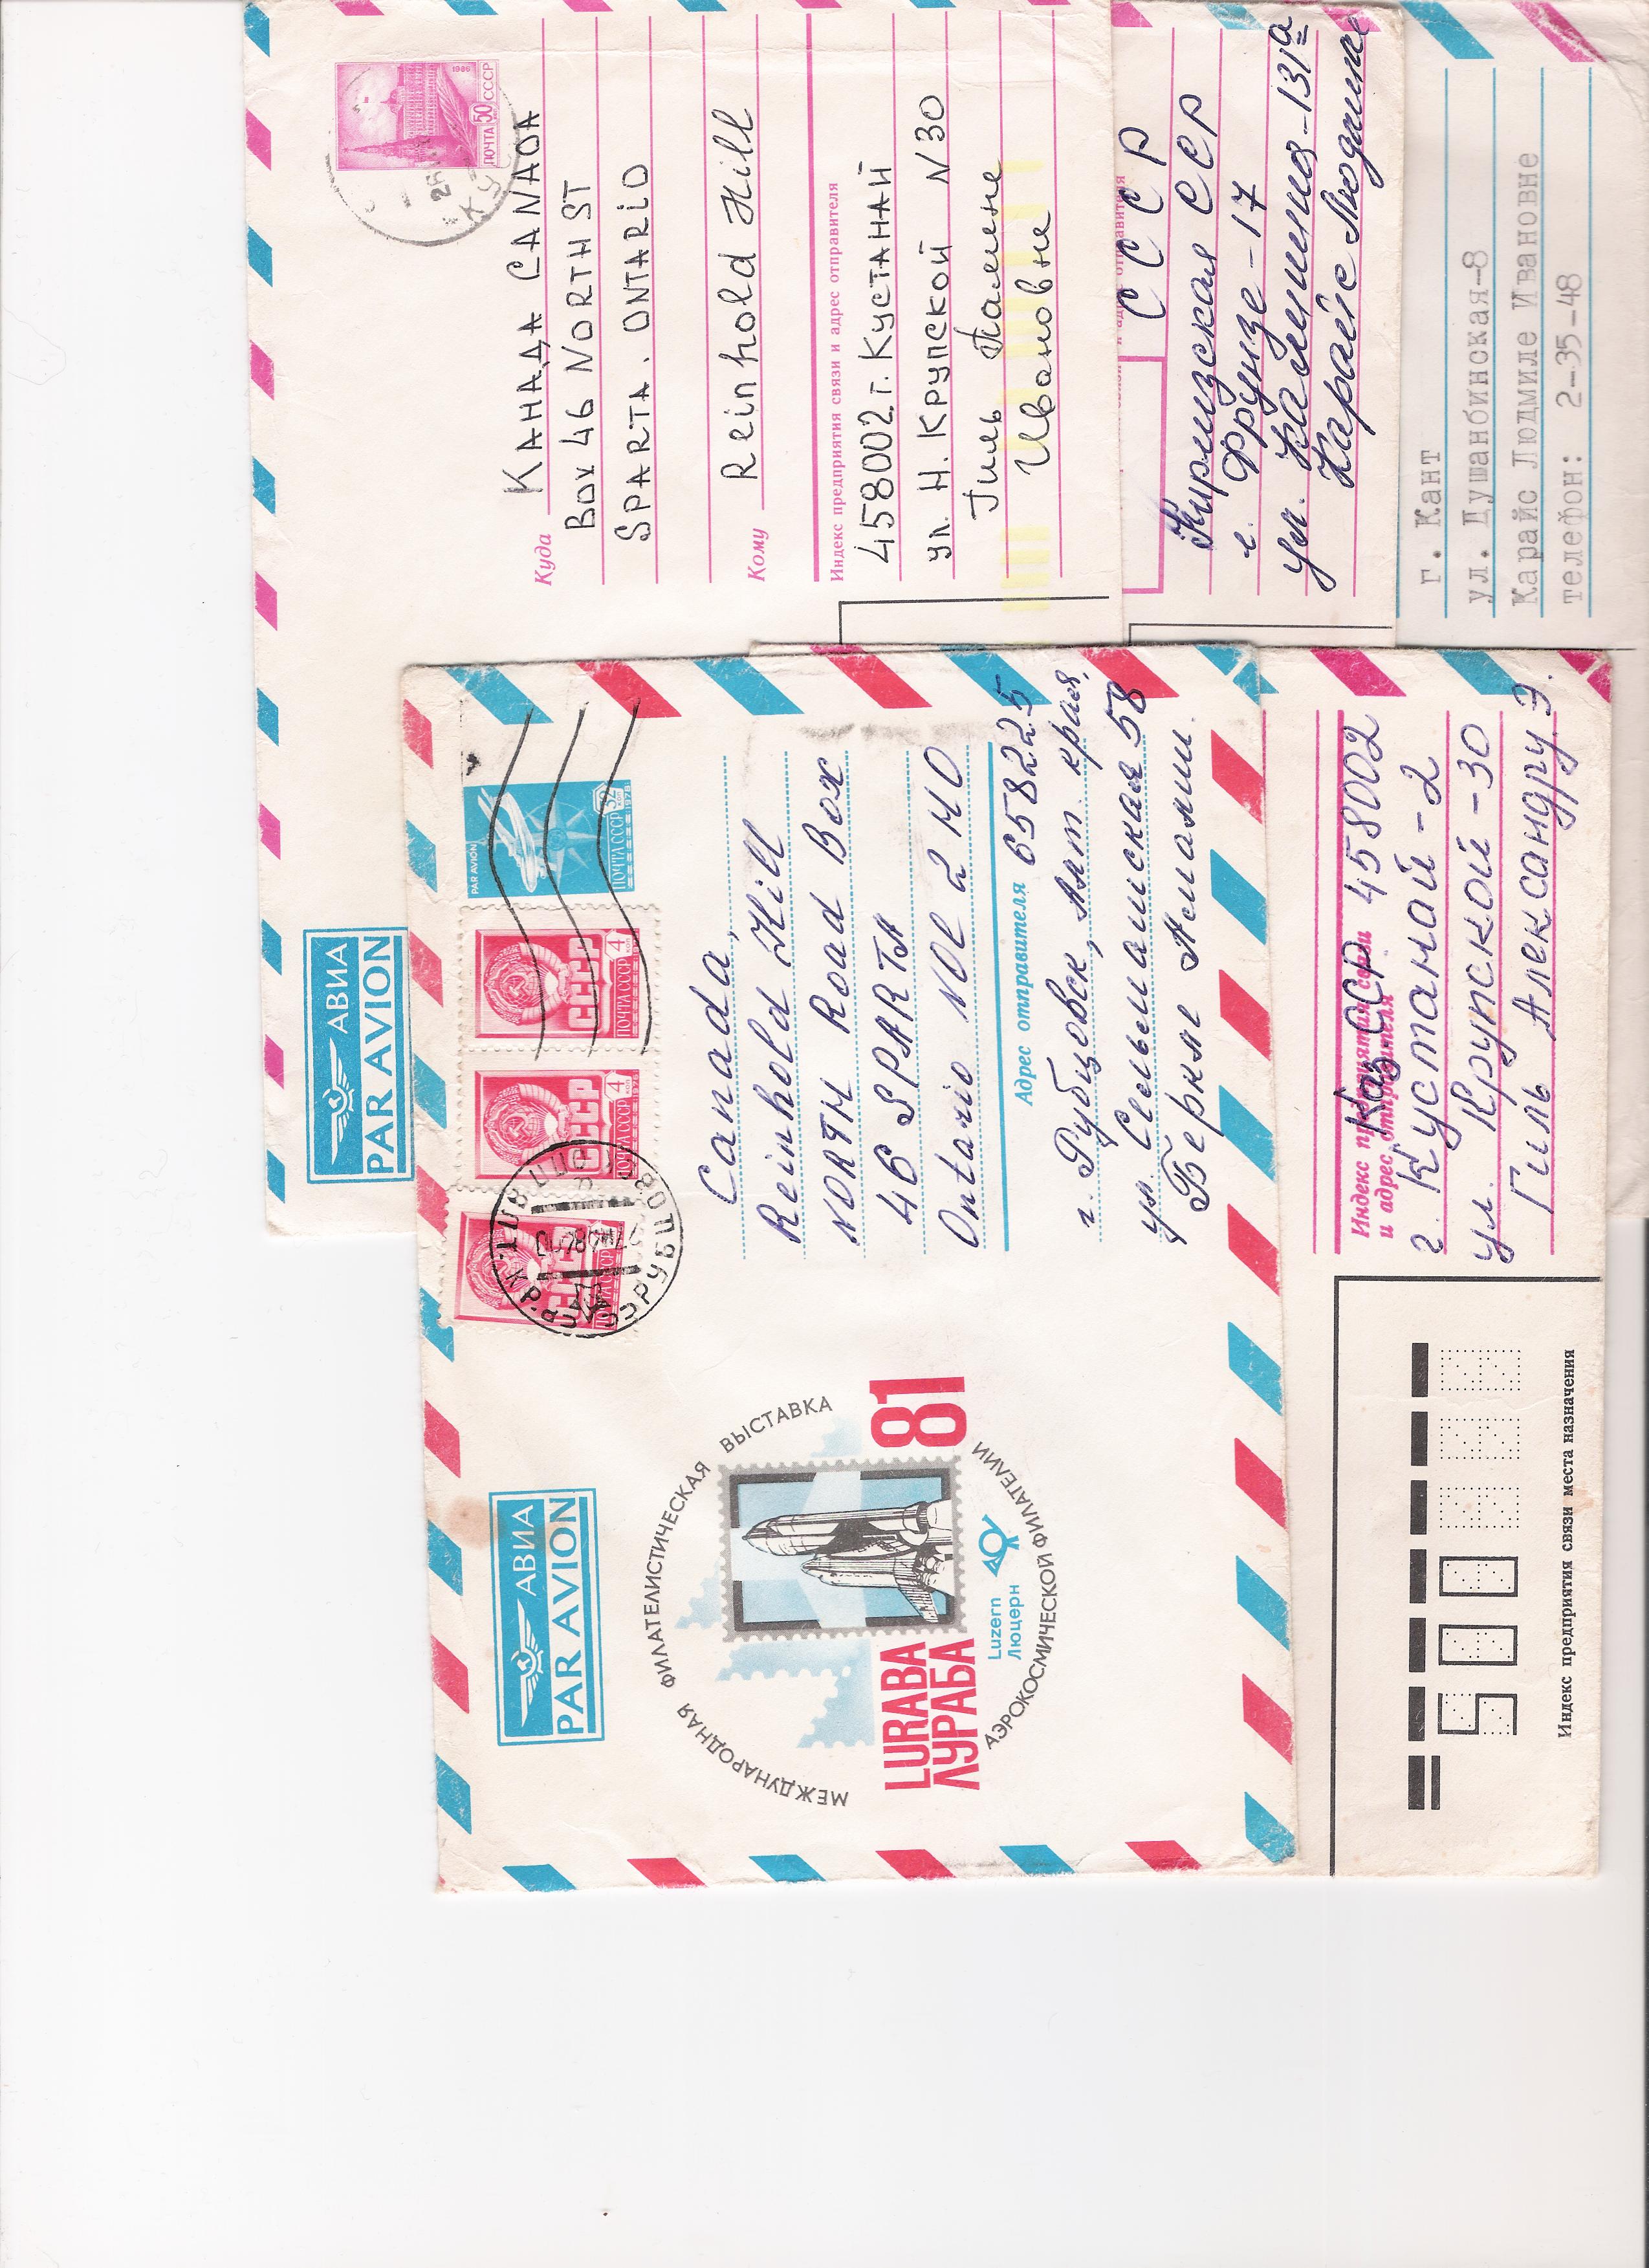 АВИА
PAR AVION
1986
ПОЧТА 50 СССР
Куда КАНАДА CANADA
BOX 46 NORTH ST
SPARTA. ONTARIO
Кому Reinhold Hill
Индекс предприятия связи и адрес отправителя
458002 г. КУСТАНАЙ
ул. Н. КРУПСКОЙ N 30
Гиль
Ивановне
С С С Р
Киргизская ССР
г. Фрунзе-17
ул. Калинина-131а
Карайс
г. Кант
ул. Душанбинская-8
Карайс Людмиле Ивановне
телефон: 2-35-48
АВИА
PAR AVION
СССР
ПОЧТА СССР
СССР
ПОЧТА СССР 4 КОП
СССР
ПОЧТА СССР 4 КОП
PAR AVION
ПОЧТА СССР 32 КОП
МЕЖДУНАРОДНАЯ ФИЛАТЕЛИСТИЧЕСКАЯ ВЫСТАВКА
LURABA 81
ЛУРАБА
Luzern
Люцерн
АЭРОКОСМИЧЕСКОЙ ФИЛАТЕЛИИ
Canada,
Reinhold Hill
NORTH Road Box
46 SPARTA
Ontario NOL 2 HO
Адрес отправителя 658225
г. Рубцовск, Алт. края,
ул. Сельмашская 58
Беркле
Индекс предприятия связи
и адрес отправителя
Каз. ССР 458002
г. Кустанай-2
ул. Крупской-30
Гиль Александру Э.
500
Индекс предприятия связи места назначения